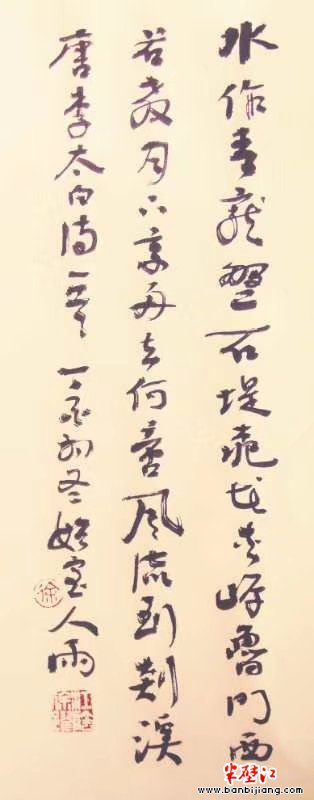 水作青龍盤石堤桃花夾岸魯門西
若教月下乘舟去何啻風流到剡溪
唐李太白詩一首 初冬 人雨
徐
半壁江
www.banbijiang.com